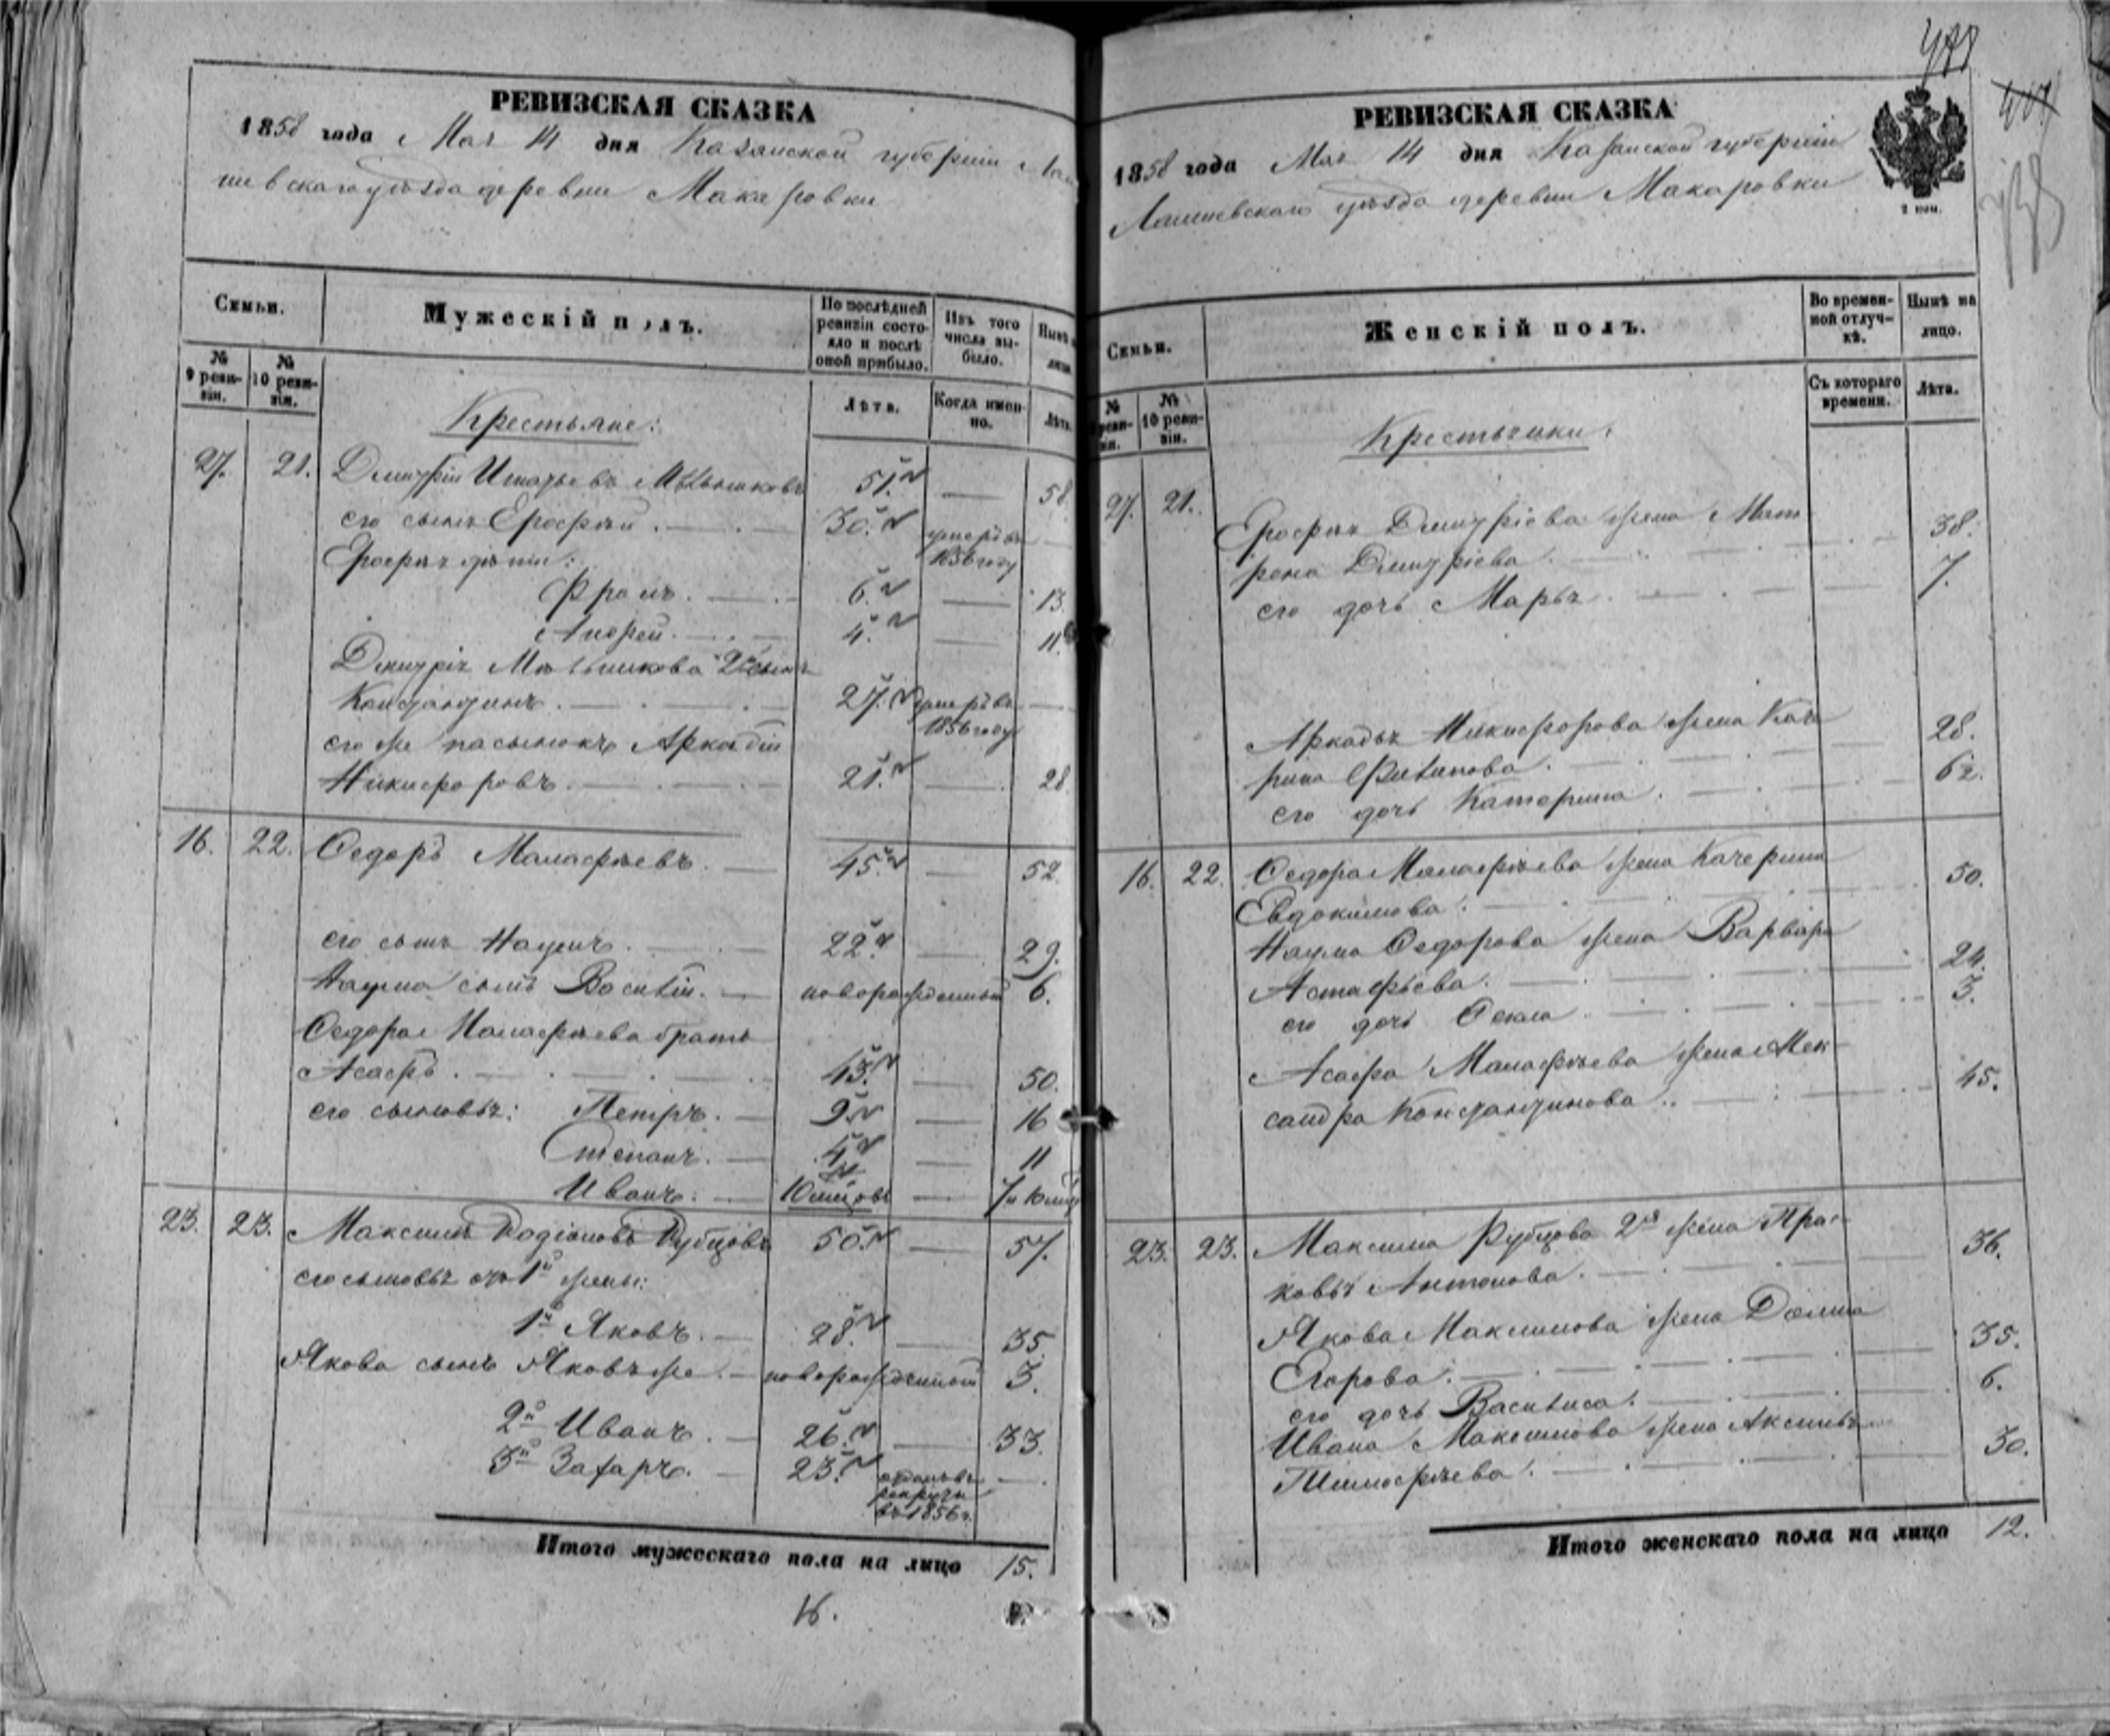 РЕВИЗСКАЯ СКАЗКА
1858 года Мая 14 дня Казанской губернии Лаи
шевскаго уѣзда деревни Макаровки
Семьи.
Мужескій полъ.
По послѣдней ревизіи состояло и послѣ оной прибыло.
Изъ того числа выбыло.
Нынѣ
№ 9 ревизіи.
№ 10 ревизіи.
Лѣта.
Когда именно.
Лѣта.
Крестьяне:
27. 21. Дмитрій Игнатьевъ Мѣльниковъ 51. — 58
его сынъ Ерофѣй. 30. умеръ въ 1856 году —
Ерофѣя дѣти:
Фролъ. 6. — 13.
Андрей. 4. — 11.
Дмитрія Мѣльникова 2й сынъ
Константинъ. 27. умеръ въ 1856 году —
его же пасынокъ Аркадій
Никифоровъ. 21. — 28.
16. 22. Ѳедоръ Малафѣевъ. 45. — 52.
его сынъ Наумъ. 22. — 29.
Наума сынъ Василій. — новорожденный 6.
Ѳедора Малафѣева братъ
Асафъ. 43. — 50.
его сыновья: Петръ. 9. — 16
Степанъ. 4. — 11
Иванъ. 10 мѣсцовъ — 7 и 10 мѣс
23. 23. Максимъ Родіоновъ Рубцовъ 50. — 57.
его сыновья отъ 1й жены:
1й Яковъ. 28. — 35.
Якова сынъ Яковъ же. — новорожденный 3.
2й Иванъ. 26. — 33.
3й Захаръ. 23. отданъ въ рекруты въ 1856 г. —
Итого мужескаго пола на лицо 15.
16.
РЕВИЗСКАЯ СКАЗКА
1858 года Мая 14 дня Казанской губерніи
Лаишевскаго уѣзда деревни Макаровки
2 коп.
Семьи.
Женскій полъ.
Во временной отлучкѣ.
Нынѣ на лицо.
№ ревизіи.
№ 10 ревизіи.
Съ котораго времени.
Лѣта.
Крестьянки:
27. 21. Ерофѣя Дмитріева жена Мат
рена Дмитріева. 38.
его дочь Марья. 7.
Аркадья Никифорова жена Кате
рина Филипова. 28.
его дочь Катерина. 6
16. 22. Ѳедора Малафѣева жена Катерина
Евдокимова. 50.
Наума Ѳедорова жена Варвара
Астафьева. 24.
его дочь Ѳекла 3.
Асафа Малафѣева жена Алек
сандра Константинова. 45.
23. 23. Максима Рубцова 2я жена Прас
ковья Антонова. 36.
Якова Максимова жена Домна
Егорова. 35.
его дочь Василиса. 6.
Ивана Максимова жена Аксинья
Тимофѣева. 30.
Итого женскаго пола на лицо 12.